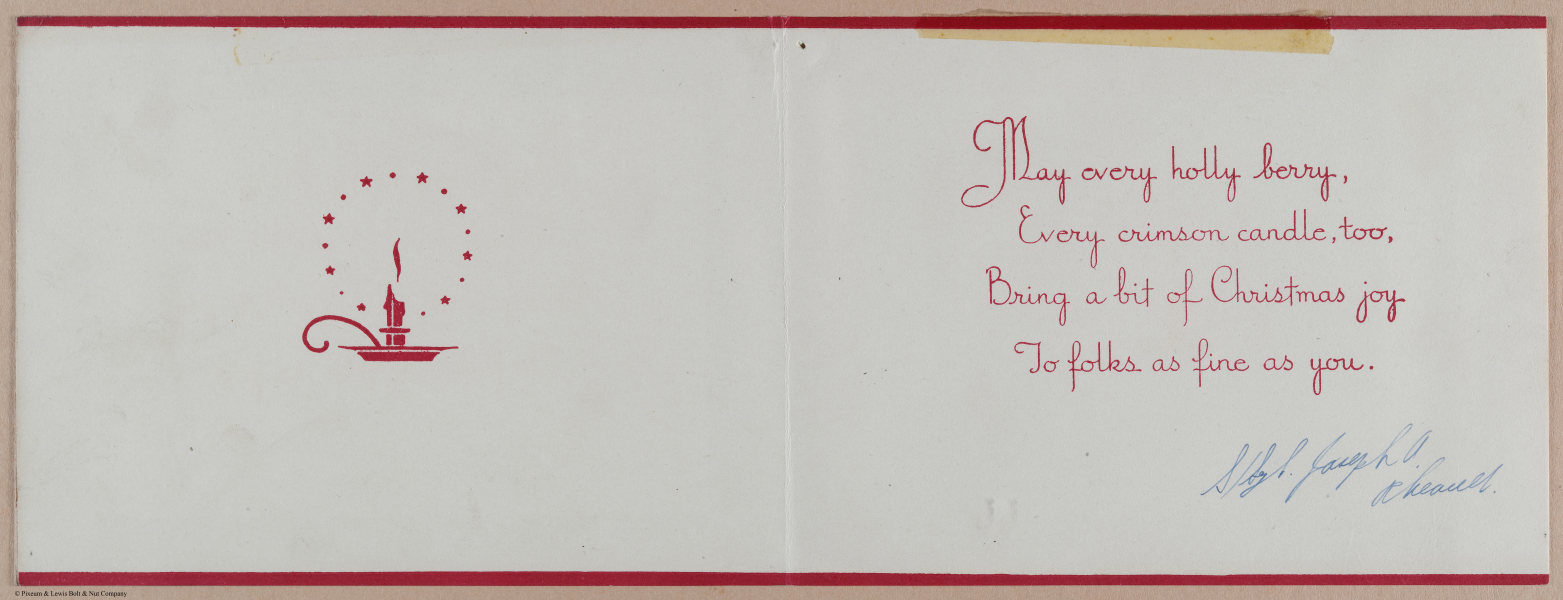 May every holly berry,
Every crimson candle, too,
Bring a bit of Christmas joy
To folks as fine as you.
S/Sgt. Joseph A.
Rheault.
© Pixeum & Lewis Bolt & Nut Company